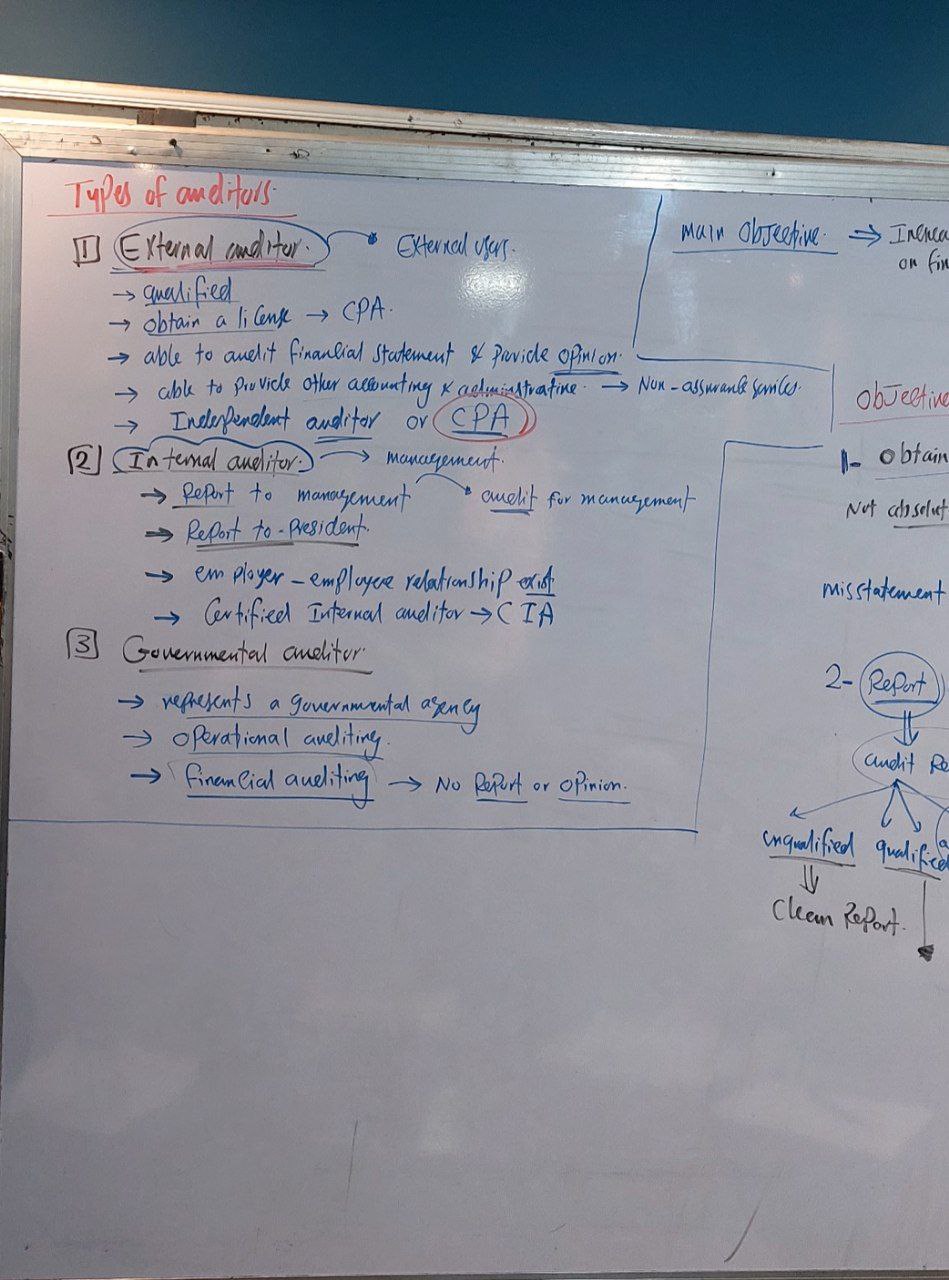 Types of auditors.
1 External auditor. → External users.
→ qualified
→ obtain a license → CPA.
→ able to audit financial statement & provide opinion.
→ able to provide other accounting & adminstrative. → Non-assurance services.
→ Independent auditor or CPA
2 Internal auditor. → management.
→ Report to management → audit for management
→ Report to-President.
→ employer-employee relationship exist
→ Certified Internal auditor → CIA
3 Governmental auditor.
→ represents a governmental agency
→ operational auditing.
→ financial auditing → No Report or opinion.
main objective. ⇒ Increa
on fin
objective
1- obtain
Not absolut
misstatement
2- Report
audit Re
unqualified qualified
Clean Report.